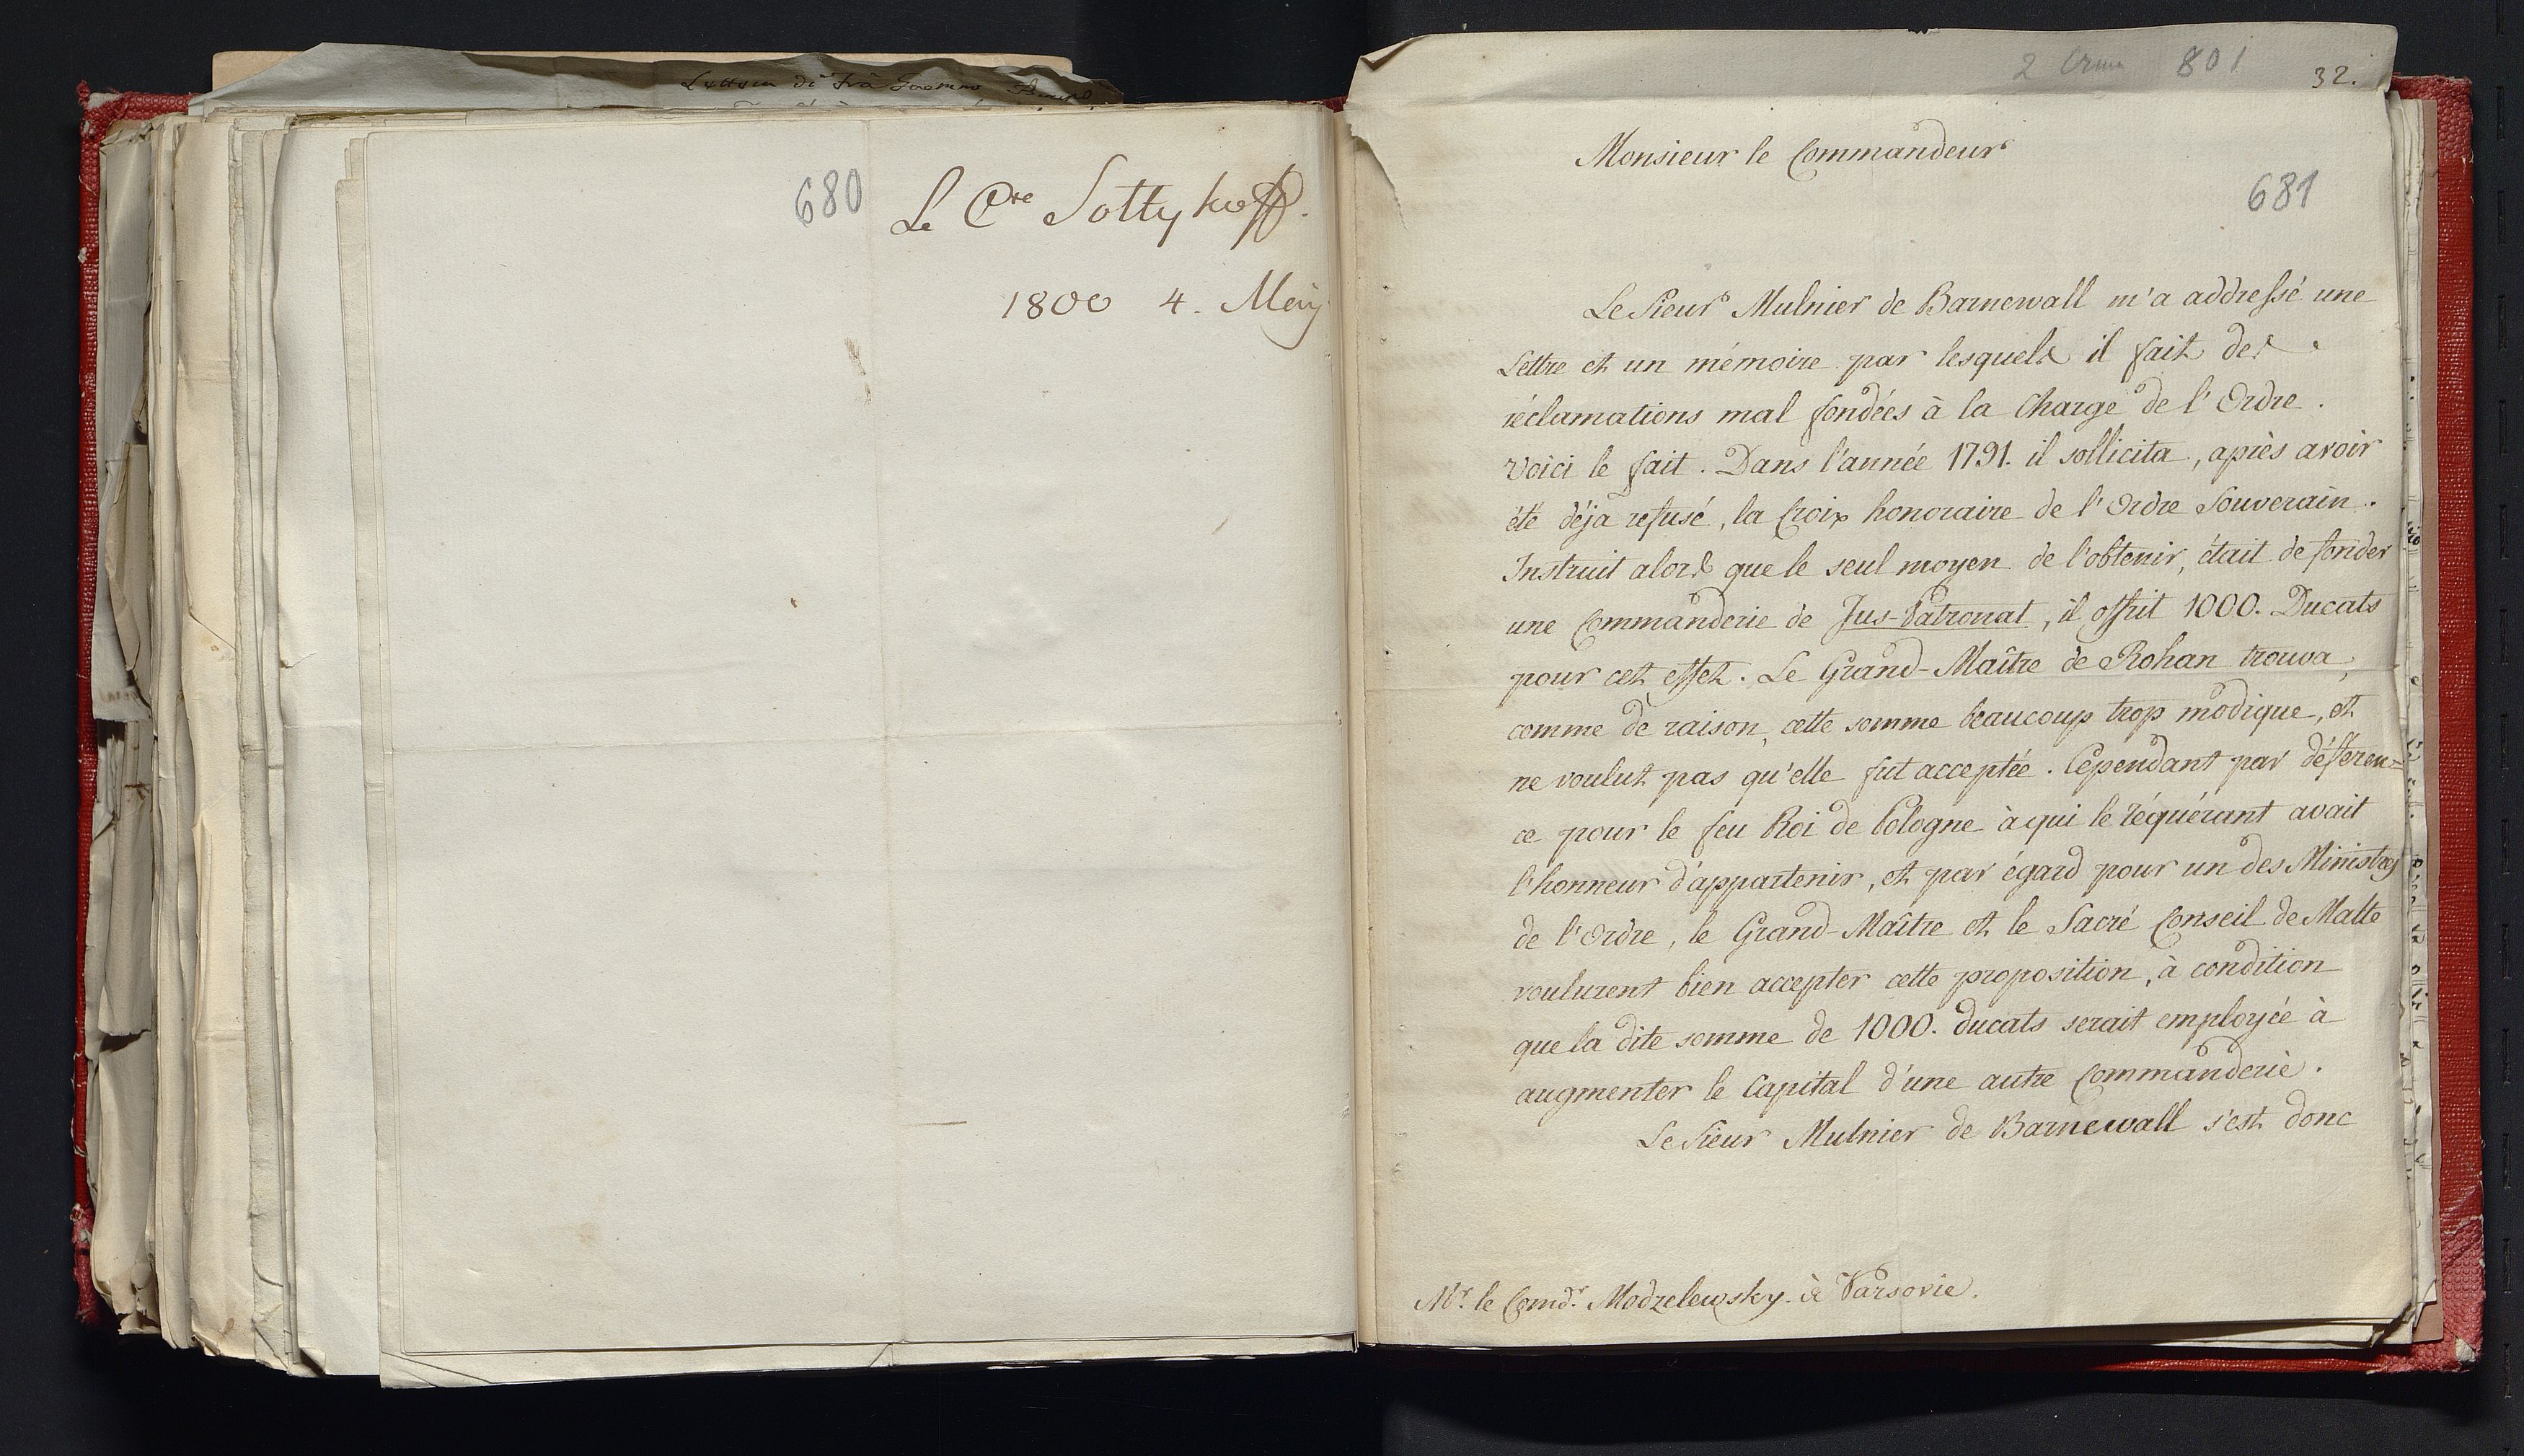 680
Le Cte Solttykoff.
1800 4. Meiÿ
801
32.
Monsieur le Commandeur
681
Le Sieur Mulnier de Barnewall m'a addressé une
Lettre et un mémoire par lesquels il fait des
réclamations mal fondées à la Charge de l'Ordre.
Voici le fait. Dans l'année 1791. il sollicita, après avoir
été déja refusé, la Croix honoraire de l'Ordre Souverain.
Instruit alors que le seul moyen de l'obtenir, était de fonder
une Commanderie de Jus-Patronat, il offrit 1000. Ducats
pour cet effet. Le Grand-Maître de Rohan trouva,
comme de raison, cette somme beaucoup trop modique, et
ne voulut pas qu'elle fut acceptée. Cependant par défferen=
ce pour le feu Roi de Pologne à qui le réquérant avait
l'honneur d'appartenir, et par égard pour un des Ministres
de l'Ordre, le Grand-Maître et le Sacré Conseil de Malte
voulurent bien accepter cette proposition, à condition
que la dite somme de 1000. ducats serait employée à
augmenter le Capital d'une autre Commanderie.
Le Sieur Mulnier de Barnewall s'est donc
Mr. le Comdr. Modzelewsky. à Varsovie.